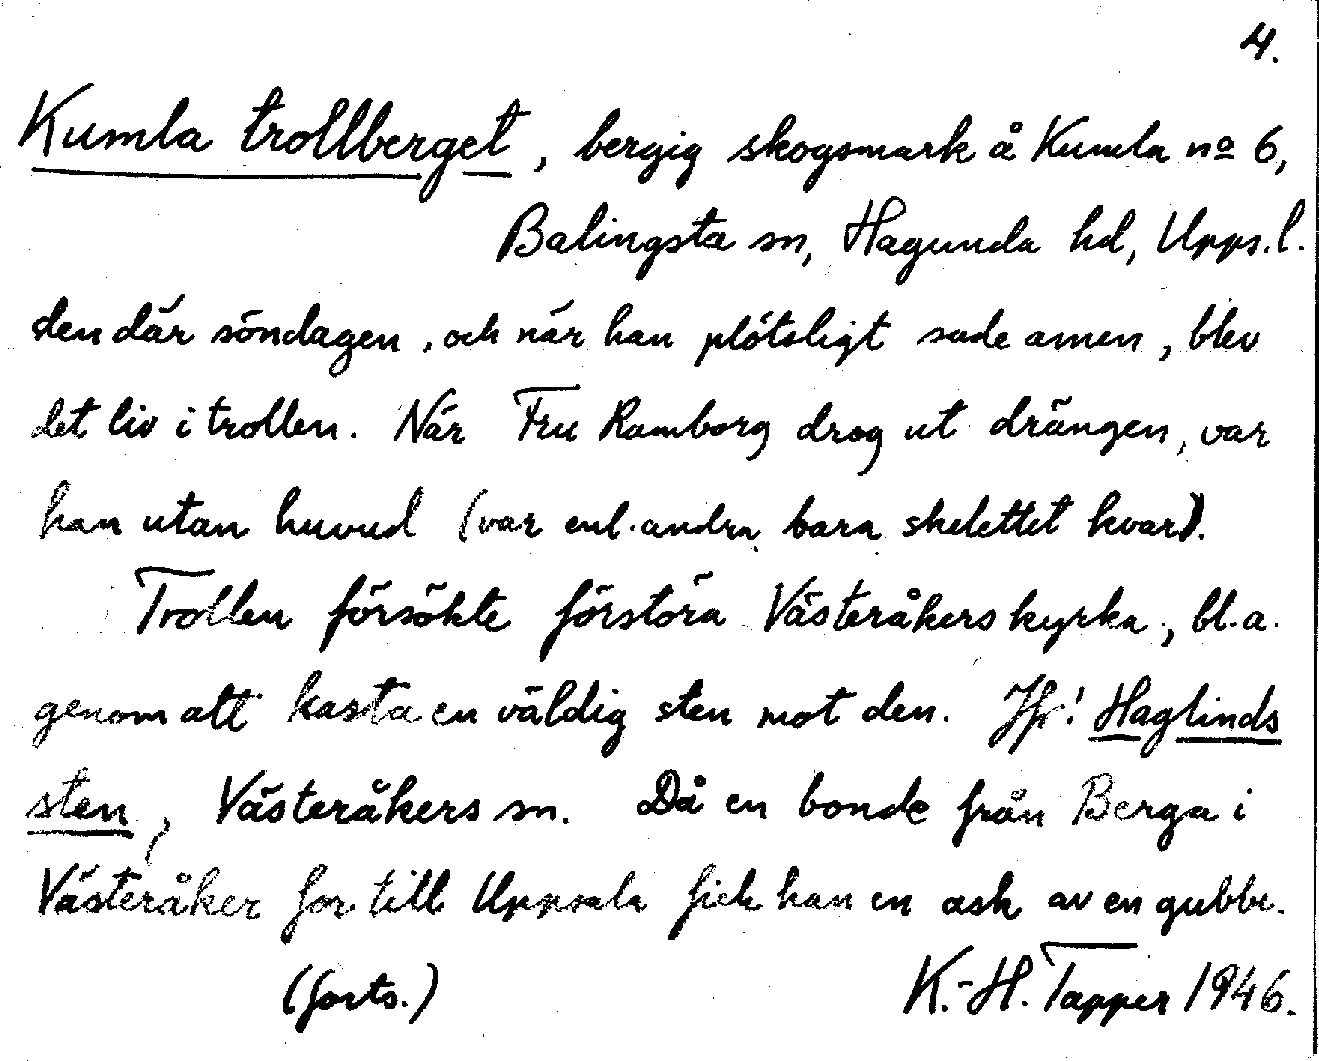 4.
Kumla trollberget, bergig skogsmark å Kumla nº 6,
Balingsta sn, Hagunda hd, Upps.l.
den där söndagen, och när han plötsligt sade amen, blev
det liv i trollen. När Fru Ramborg drog ut drängen, var
han utan huvud (var enl. andra bara skelettet kvar).
Trollen försökte förstöra Västeråkers kyrka, bl.a.
genom att kasta en väldig sten mot den. Jfr! Haglinds
sten, Västeråkers sn. Då en bonde från Berga i
Västeråker for till Uppsala fick han en ask av en gubbe.
(forts.) K.-H. Tapper 1946.